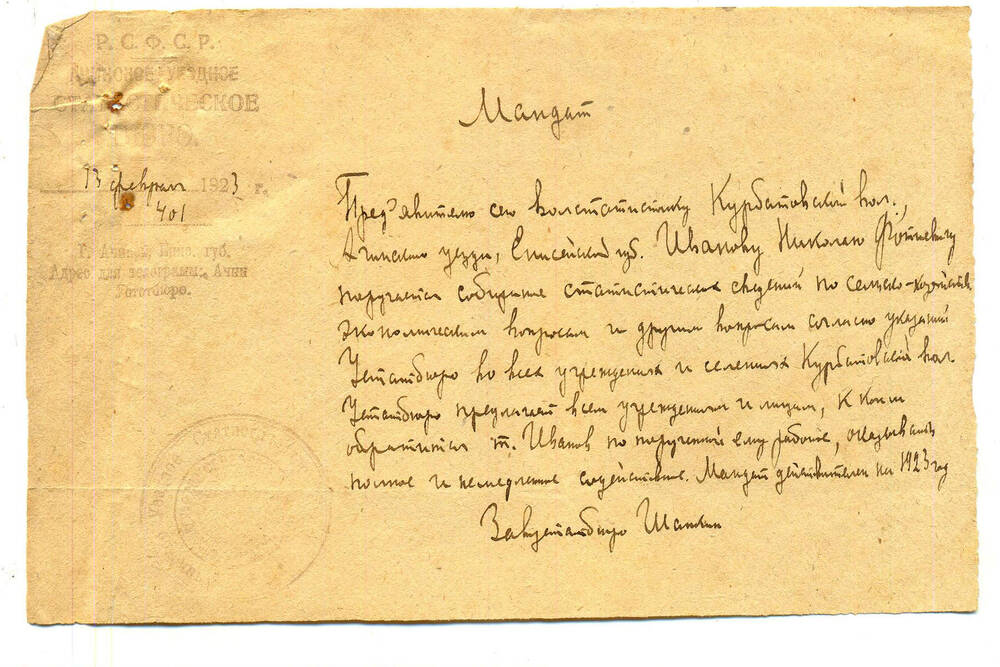 Р. С. Ф. С. Р.
УЕЗДНОЕ
СТАТИСТИЧЕСКОЕ
БЮРО.
13 февраля 1923 г.
401
Г. Ачинск, Енис. губ.
Адрес для телеграмм: Ачин
Мандат
Пред'явителю сего волстатистику Курбатовской вол.,
Ачинского уезда, Енисейской губ. Иванову Николаю
поручается собирание статистических сведений по сельско-хозяйств.
экономическим вопросам и другим вопросам согласно указаний
Устатбюро во всех учреждениях и селениях Курбатовской вол
Устатбюро предлагает всем учреждениям и лицам, к коим
обратится т. Иванов по порученной ему работе, оказывать
полное и немедленное содействие. Мандат действителен на 1923 год
Завустатбюро